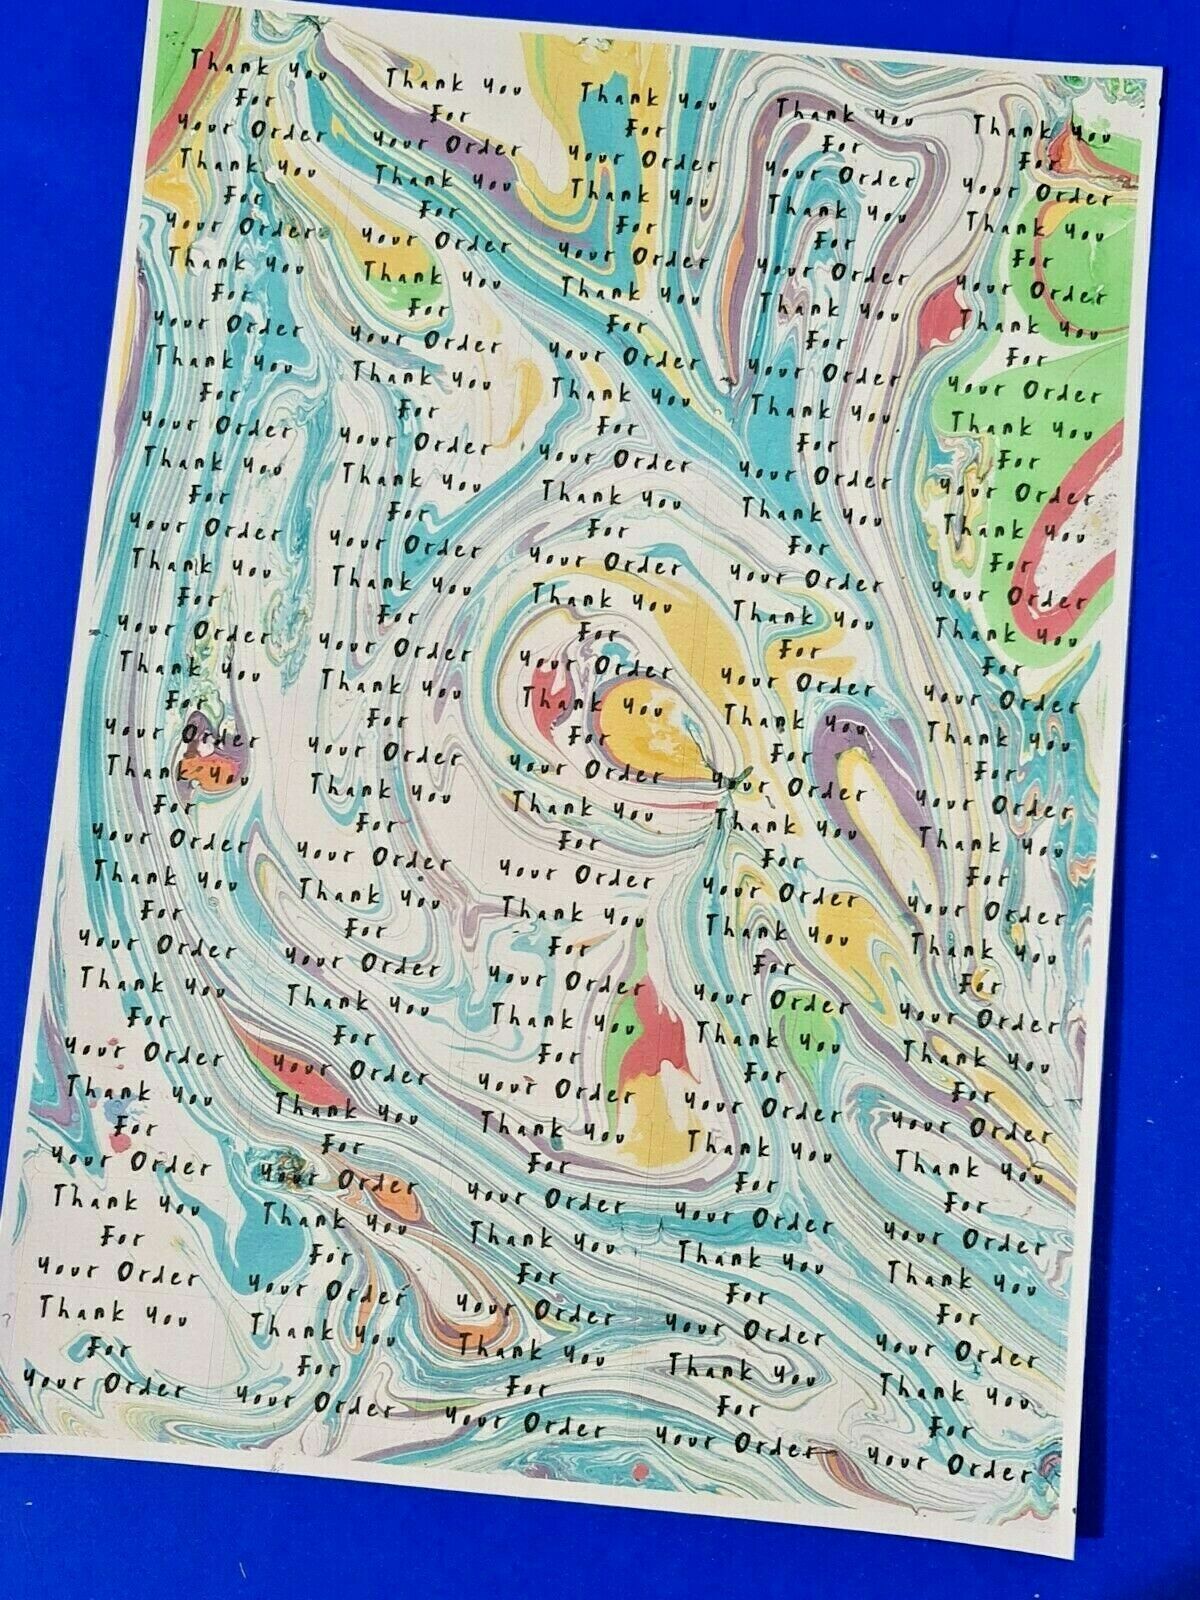 Thank You Thank You Thank You Thank You Thank You
For For For For For
Your Order Your Order Your Order Your Order Your Order
Thank You Thank You Thank You Thank You Thank You
For For For For For
Your Order Your Order Your Order Your Order Your Order
Thank You Thank You Thank You Thank You Thank You
For For For For For
Your Order Your Order Your Order Your Order Your Order
Thank You Thank You Thank You Thank You Thank You
For For For For For
Your Order Your Order Your Order Your Order Your Order
Thank You Thank You Thank You Thank You Thank You
For For For For For
Your Order Your Order Your Order Your Order Your Order
Thank You Thank You Thank You Thank You Thank You
For For For For For
Your Order Your Order Your Order Your Order Your Order
Thank You Thank You Thank You Thank You Thank You
For For For For For
Your Order Your Order Your Order Your Order Your Order
Thank You Thank You Thank You Thank You Thank You
For For For For For
Your Order Your Order Your Order Your Order Your Order
Thank You Thank You Thank You Thank You Thank You
For For For For For
Your Order Your Order Your Order Your Order Your Order
Thank You Thank You Thank You Thank You Thank You
For For For For For
Your Order Your Order Your Order Your Order Your Order
Thank You Thank You Thank You Thank You Thank You
For For For For For
Your Order Your Order Your Order Your Order Your Order
Thank You Thank You Thank You Thank You Thank You
For For For For For
Your Order Your Order Your Order Your Order Your Order
Thank You Thank You Thank You Thank You Thank You
For For For For For
Your Order Your Order Your Order Your Order Your Order